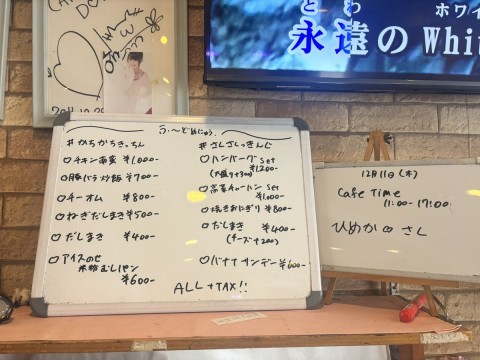 とわ
永遠の Whi
ホワイ
2011.10.29
ふ〜どめにゅう
#かちかちきっちん
○チキン南蛮 ¥1,000-
○豚バラ炒飯 ¥700-
○チーオム ¥800-
○ねぎだしまき ¥500-
○だしまき ¥400-
○アイスのせ
米粉むしパン
¥600-
#さしさしきっちん
○ハンバーグ set
¥1,200-
○高菜チャーハン set
¥1,000-
○焼きおにぎり ¥800-
○だしまき ¥400-
(チーズ+200)
○バナナサンデー ¥600-
ALL+TAX!!
12月11日(木)
Cafe Time
11:00-17:00
ひめか □ さし